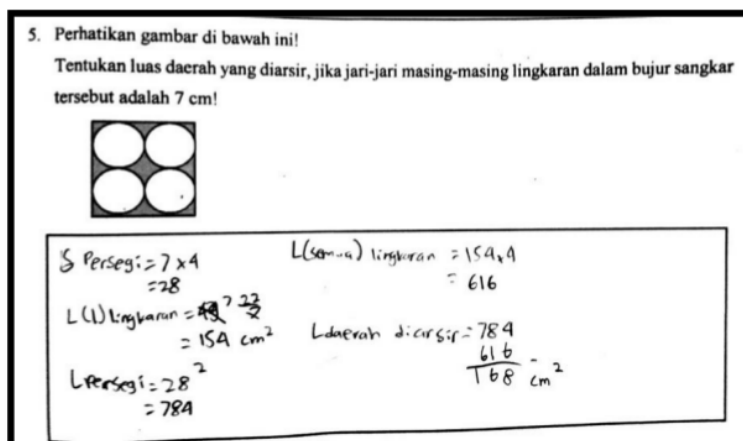 5. Perhatikan gambar di bawah ini!
Tentukan luas daerah yang diarsir, jika jari-jari masing-masing lingkaran dalam bujur sangkar
tersebut adalah 7 cm!
S Persegi = 7 x 4
= 28
L(1) lingkaran = 7 22
= 154 cm²
L Persegi = 28²
= 784
L(semua) lingkaran = 154 x 4
= 616
L daerah diarsir = 784
616 -
168 cm²